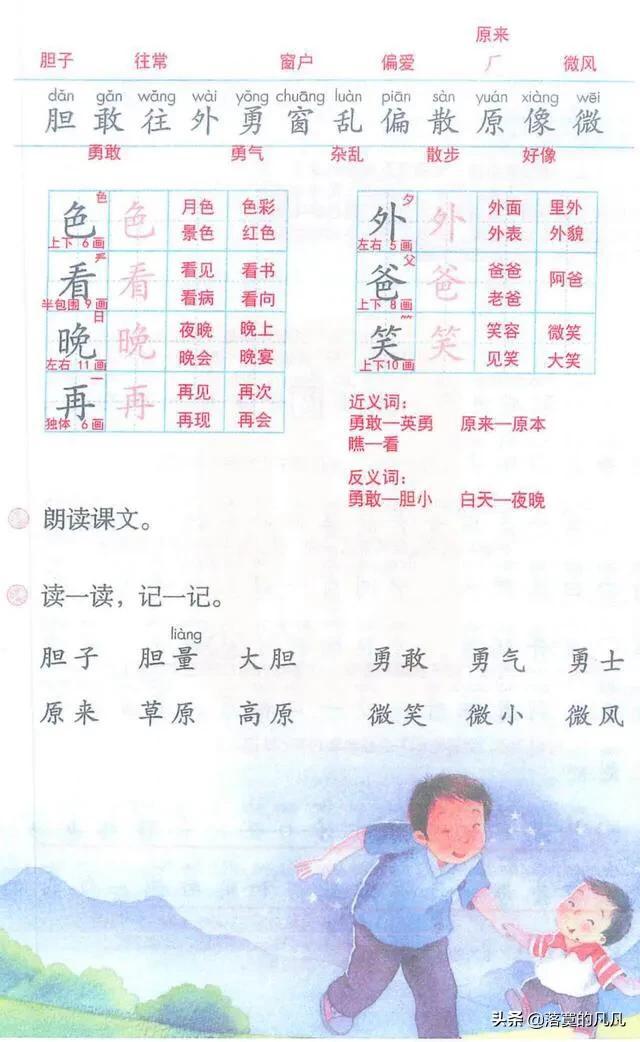 原来
胆子 往常 窗户 偏爱 厂 微风
dǎn gǎn wǎng wài yǒng chuāng luàn piān sàn yuán xiàng wēi
胆 敢 往 外 勇 窗 乱 偏 散 原 像 微
勇敢 勇气 杂乱 散步 好像
色 色 色 月色 色彩
上下 6画 景色 红色
看 看 龵 看见 看书
半包围 9画 看病 看向
晚 晚 日 夜晚 晚上
左右 11画 晚会 晚宴
再 再 一 再见 再次
独体 6画 再现 再会
外 外 夕 外面 里外
左右 5画 外表 外貌
爸 爸 父 爸爸 阿爸
上下 8画 老爸
笑 笑 ⺮ 笑容 微笑
上下10画 见笑 大笑
近义词：
勇敢—英勇 原来—原本
瞧—看
反义词：
勇敢—胆小 白天—夜晚
朗读课文。
读一读，记一记。
liàng
胆子 胆量 大胆 勇敢 勇气 勇士
原来 草原 高原 微笑 微小 微风
头条 @落寞的凡凡